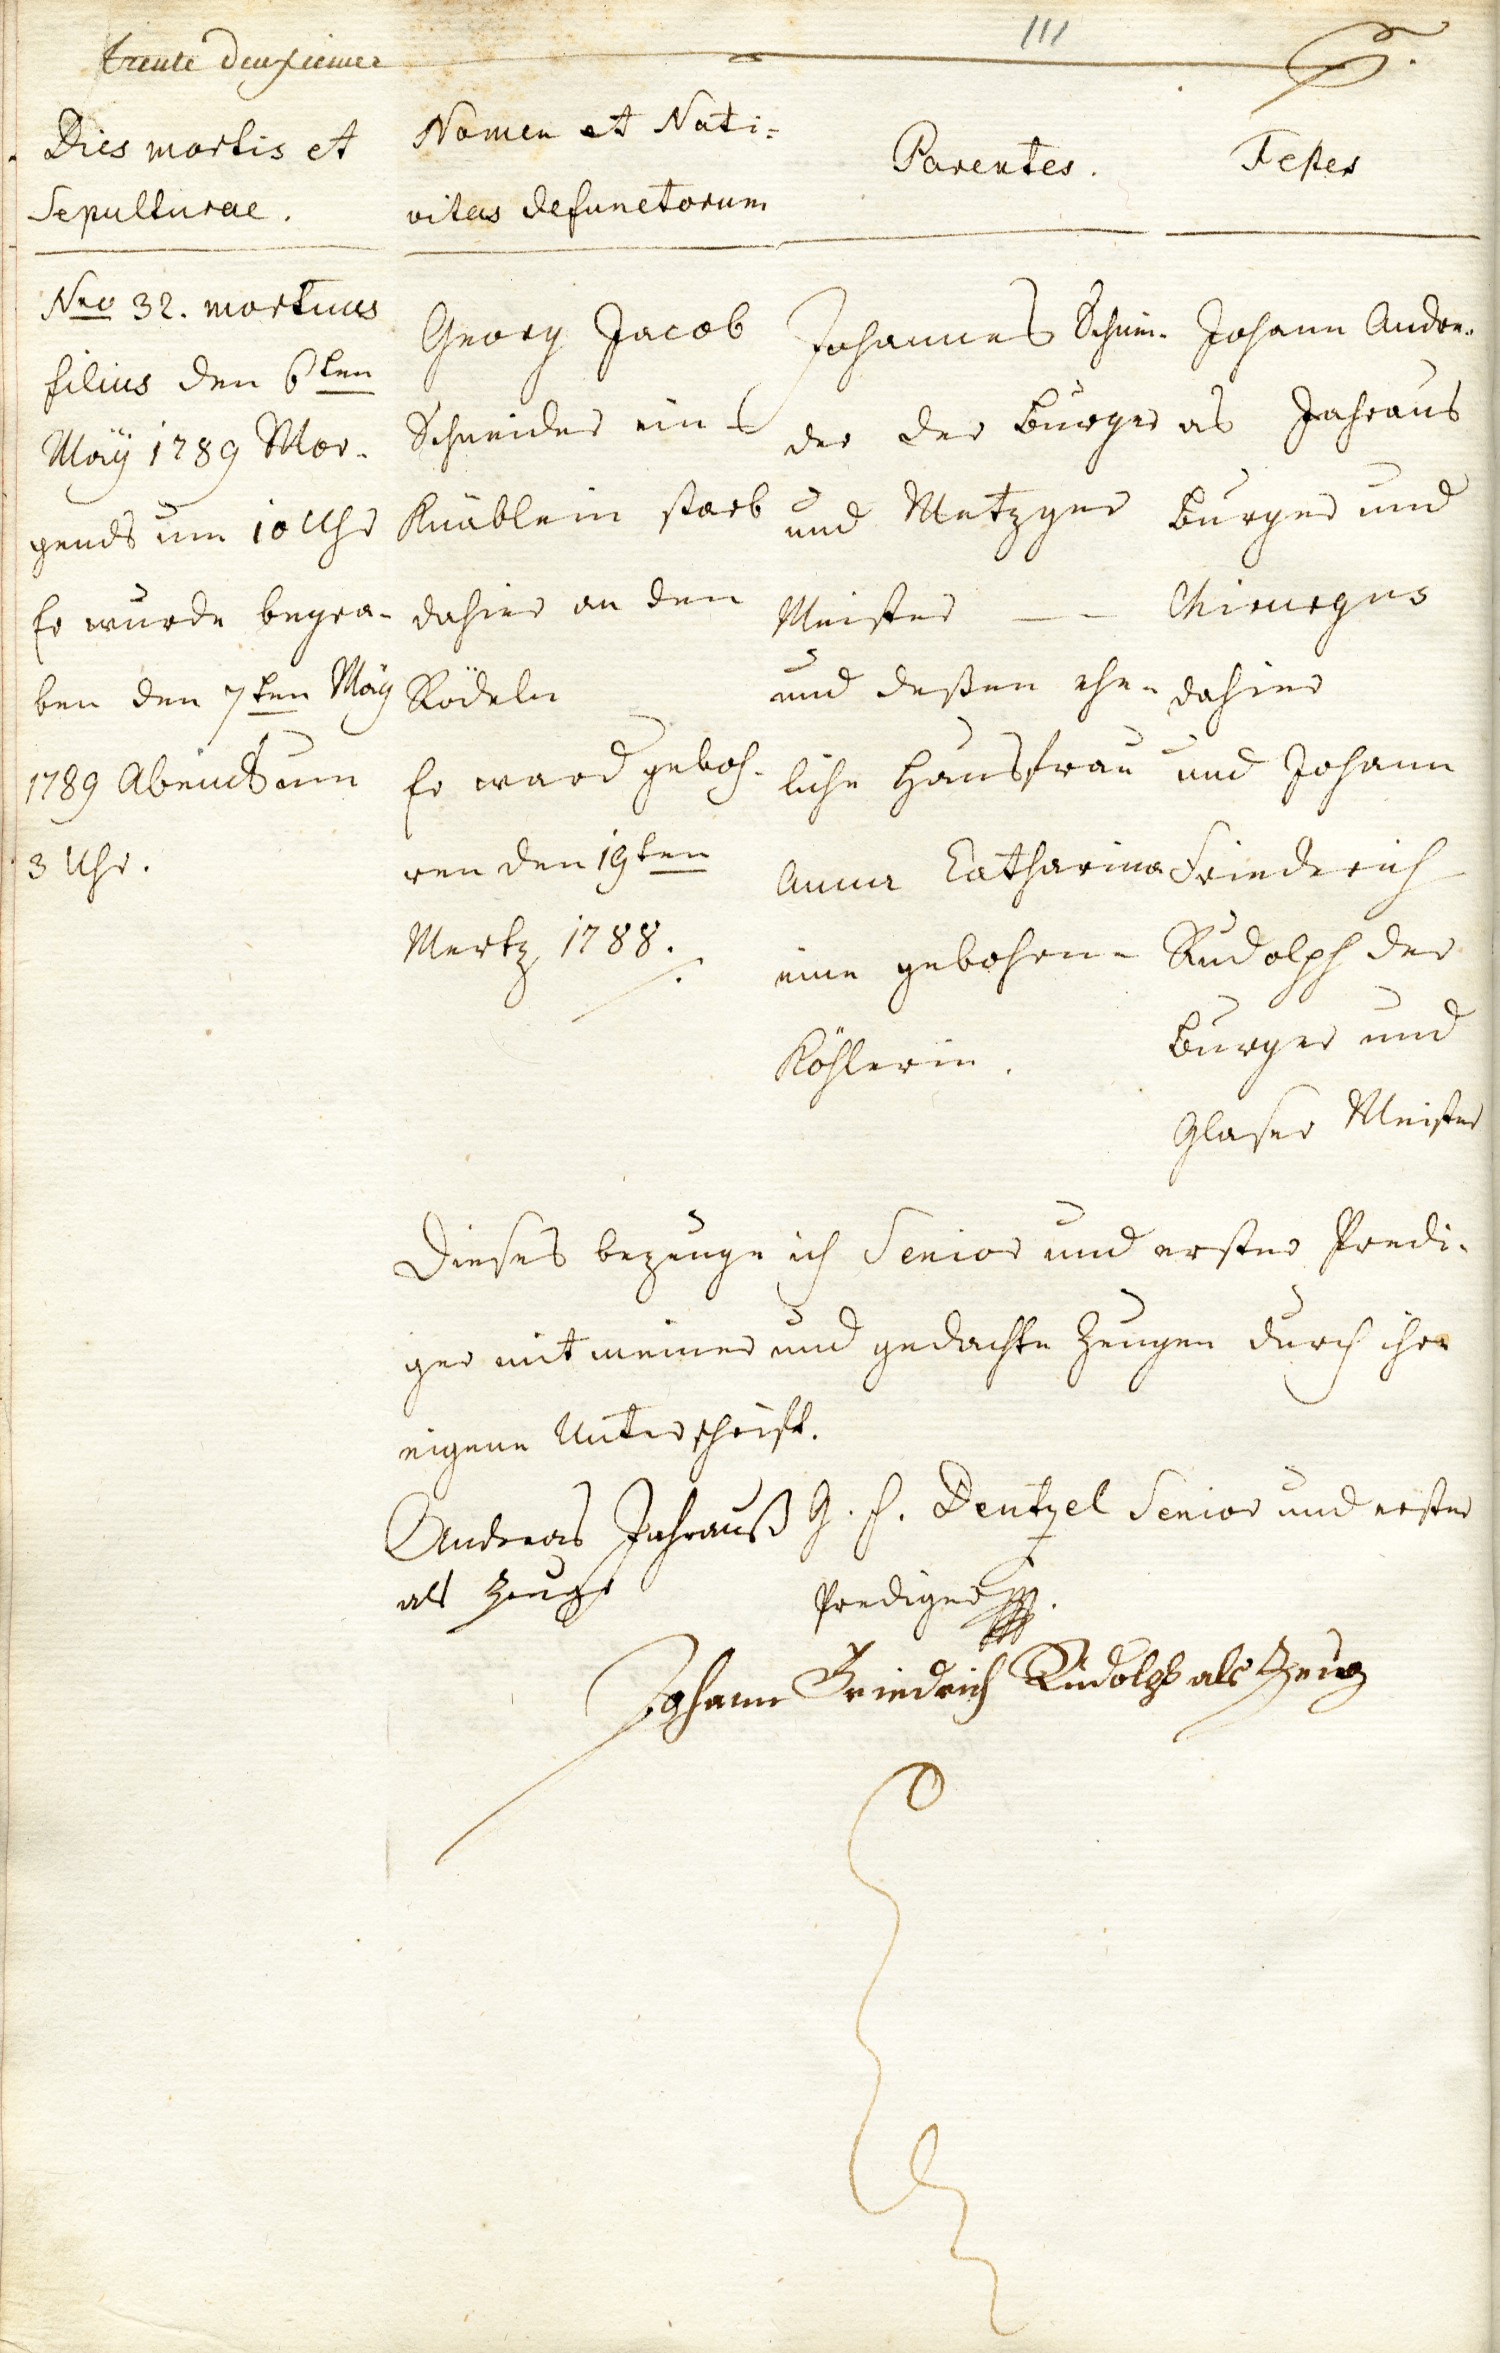 111
trente deuxieme
Dies mortis et
Sepulturae.
Nro 32. mortuus
filius den 6ten
Maÿ 1789 Mor-
gends um 10 Uhr
Er wurde begra-
ben den 7ten Maÿ
1789 Abends um
3 Uhr.
Nomen et Nati-
vitas defunctorum
Georg Jacob
Schneider ein
Knäblein starb
dahier an den
Rödeln
Er ward geboh-
ren den 19ten
Mertz 1788.
Parentes.
Johannes Schnei-
der der Burger
und Metzger
Meister
und deßen ehe-
liche Hausfrau
Anna Catharina
eine gebohrne
Köhlerin.
Testes
Johann Andre-
as Jahraus
Burger und
Chirurgus
dahier
und Johann
Friederich
Rudolph der
Burger und
Glaser Meister
Dieses bezeuge ich Senior und erster Predi-
ger mit meiner und gedachte Zeugen durch ihre
eigene Unterschrift.
Andreas Jahrauß
als Zeuge
G. F. Dentzel Senior und erster
Prediger
Johann Friedrich Rudolph als Zeug